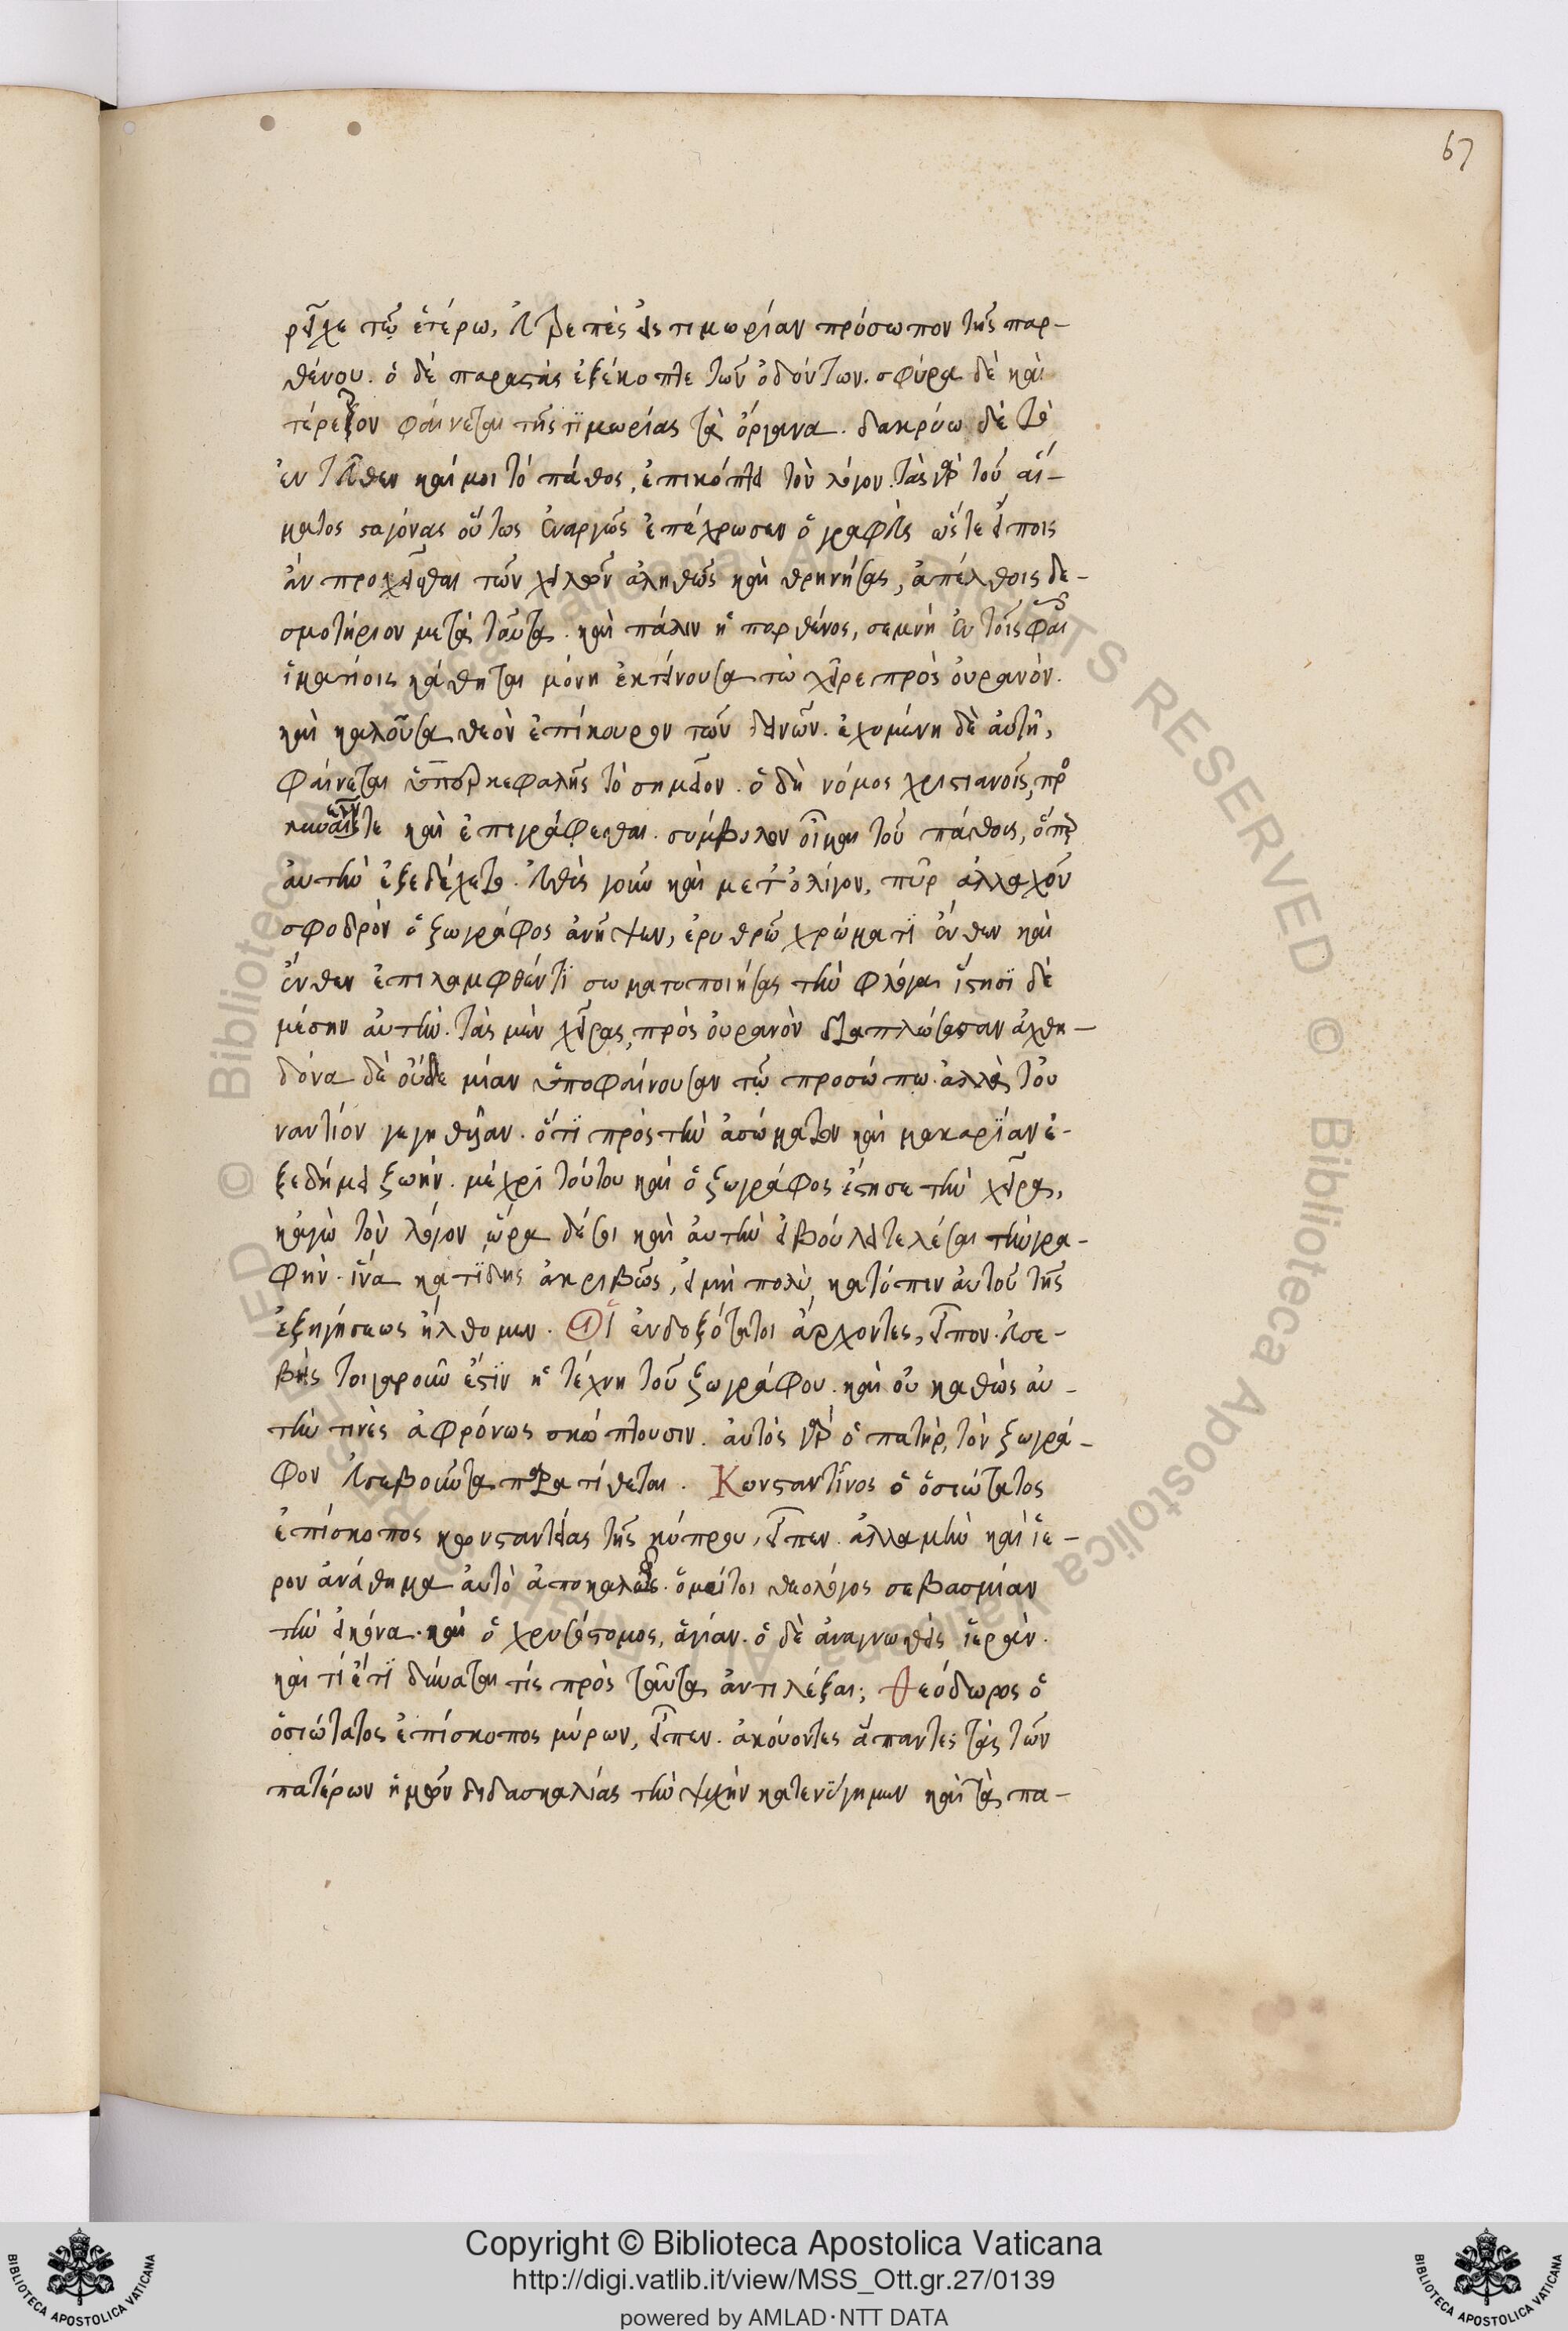 67
ρεῖχε τῶ ἑτέρω, εὐτρεπὲς εἰς τιμωρίαν πρόσωπον τῆς παρ-
θένου. ὁ δὲ παραστὰς ἐξέκοπτε τῶν ὀδόντων. σφύρα δὲ καὶ
τέρετρον φαίνεται τῆς τιμωρίας τὰ ὄργανα. δακρύω δὲ τὸ
ἐντεῦθεν καί μοι τὸ πάθος, ἐπικόπτει τὸν λόγον. τὰς γὰρ τοῦ αἵ-
ματος σταγόνας οὕτως ἐναργῶς ἐπέχρωσεν ὁ γραφεὺς ὥστε εἴποις
ἂν προχεῖσθαι τῶν χειλέων ἀληθῶς καὶ θρηνήσας, ἀπέλθοις δε-
σμωτήριον μετὰ ταῦτα. καὶ πάλιν ἡ παρθένος, σεμνὴ ἐν τοῖς φαι
ἱματίοις κάθηται μόνη ἐκτείνουσα τὼ χεῖρε πρὸς οὐρανὸν.
καὶ καλοῦσα θεὸν ἐπίκουρον τῶν δεινῶν. ἐχομένη δὲ αὐτῇ,
φαίνεται ὑπὲρ κεφαλῆς τὸ σημεῖον. ὃ δὴ νόμος χριστιανοῖς, προ
κυνεῖν τε καὶ ἐπιγράφεσθαι. σύμβολον οἶμαι τοῦ πάθους, ὅπερ
αὐτὴν ἐξεδέχετο. εὐθὺς γοῦν καὶ μετ' ὀλίγον, πῦρ ἀλλαχοῦ
σφοδρὸν ὁ ζωγράφος ἀνῆψεν, ἐρυθρῶ χρώματι ἔνθεν καὶ
ἔνθεν ἐπιλαμφθέντι σωματοποιήσας τὴν φλόγα. ἵστησι δὲ
μέσην αὐτὴν. τὰς μὲν χεῖρας, πρὸς οὐρανὸν διαπλώσασαν ἀχθη-
δόνα δὲ οὐδε μίαν ὑποφαίνουσαν τῶ προσώπω. ἀλλὰ τοὐ
ναντίον γεγηθυῖαν. ὅτι πρὸς τὴν ἀσώματον καὶ μακαρίαν ἐ-
ξεδήμει ζωήν. μέχρι τούτου καὶ ὁ ζωγράφος ἔστησε τὴν χεῖρα,
κἀγὼ τὸν λόγον, ὥρα δέ σοι καὶ αὐτὴν εἰ βούλει τελέσαι τὴν γρα-
φὴν. ἵνα κατίδης ἀκριβῶς, εἰ μὴ πολὺ κατόπιν αὐτοῦ τῆς
ἐξηγήσεως ἤλθομεν. Οἱ ἐνδοξότατοι ἄρχοντες, εἶπον. εὐσε-
βὴς τοιγαροῦν ἐστὶν ἡ τέχνη τοῦ ζωγράφου. καὶ οὐ καθὼς αὐ-
τὴν τινὲς ἀφρόνως σκώπτουσιν. αὐτὸς γὰρ ὁ πατὴρ, τὸν ζωγρά-
φον εὐσεβοῦντα παρατίθεται. Κωνσταντῖνος ὁ ὁσιώτατος
ἐπίσκοπος κωνσταντείας τῆς κύπρου, εἶπεν. ἀλλὰ μὴν καὶ ἱε-
ρὸν ἀνάθημα αὐτὸ ἀποκαλεῖ. ὁ μέντοι θεολόγος σεβασμίαν
τὴν εἰκόνα. καὶ ὁ χρυσόστομος, ἁγίαν. ὁ δὲ ἀναγνωσθεὶς ἱερὰν.
καὶ τί ἔτι δύναται τίς πρὸς ταῦτα ἀντιλέξαι; Θεόδωρος ὁ
ὁσιώτατος ἐπίσκοπος μύρων, εἶπεν. ἀκούοντες ἅπαντες τὰς τῶν
πατέρων ἡμῶν διδασκαλίας τὴν ψυχὴν κατενύγημεν καὶ τὰ πα-
Copyright © Biblioteca Apostolica Vaticana
http://digi.vatlib.it/view/MSS_Ott.gr.27/0139
powered by AMLAD·NTT DATA